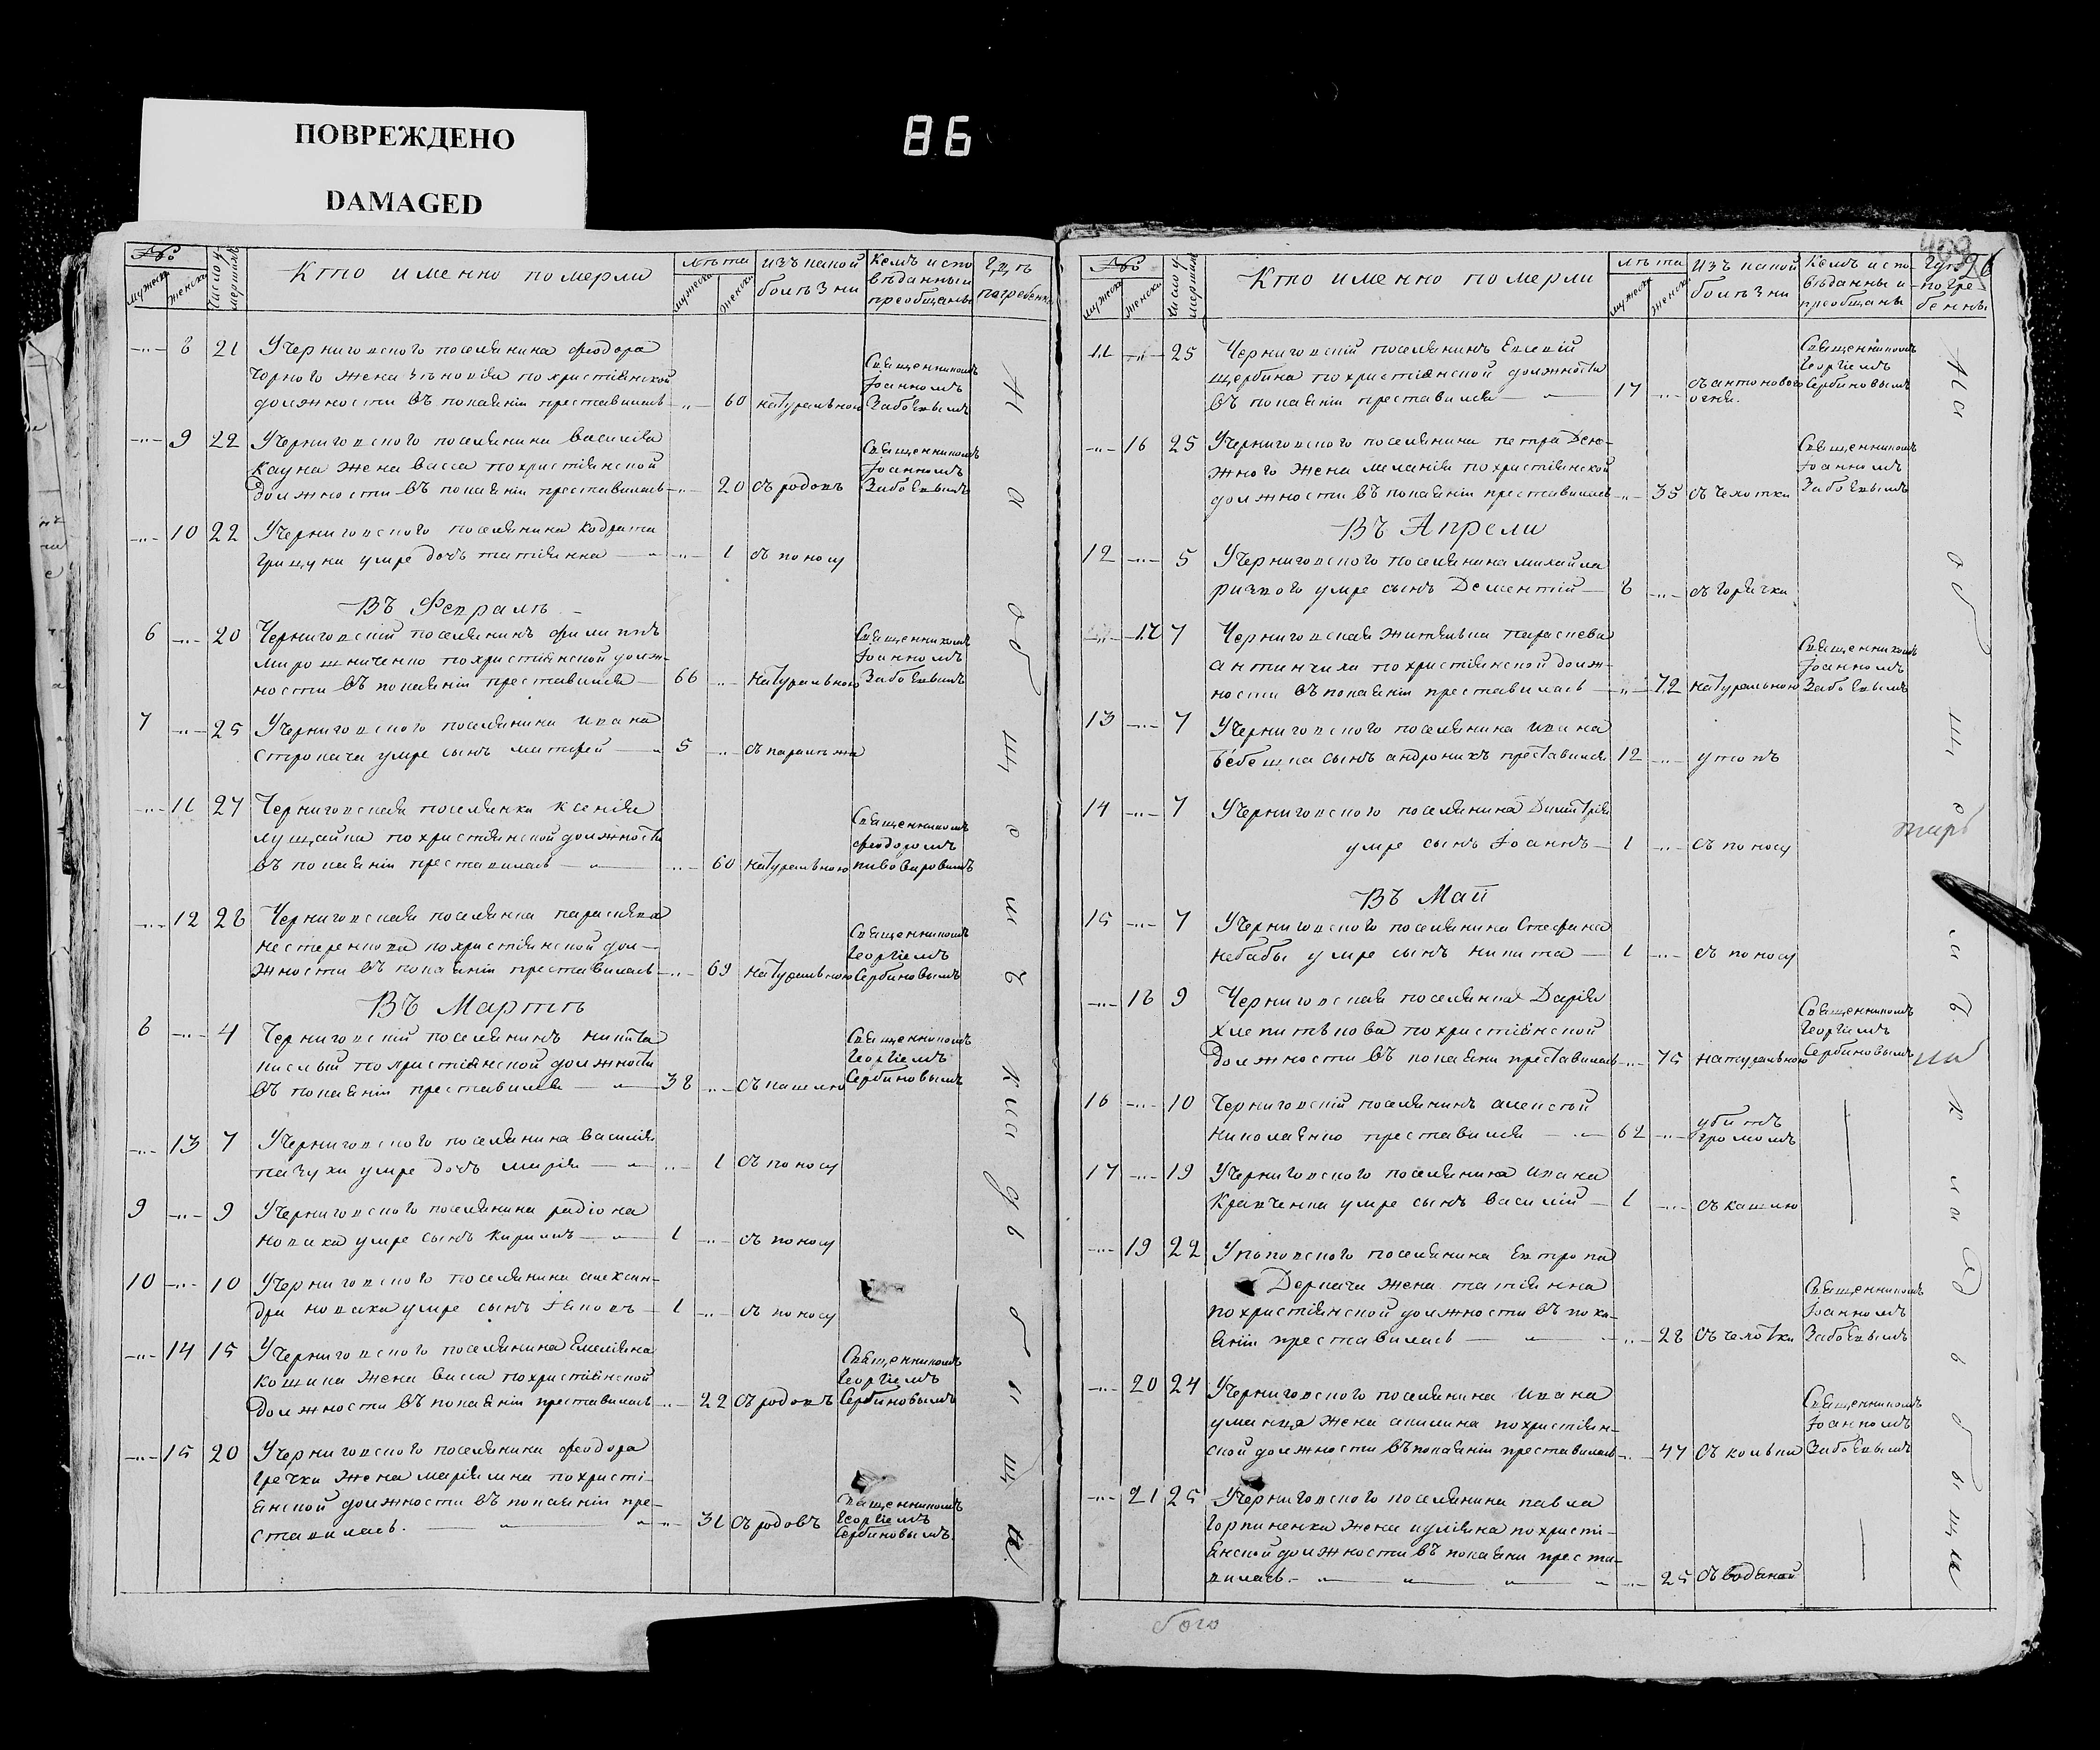 ПОВРЕЖДЕНО
DAMAGED
86
№
мужеска
женска
число умершихъ
Кто именно померли
лѣта
мужеска
женска
изъ какой болѣзни
Кемъ исповѣданы и преобщаны
Гдѣ погребенны
-..- 8 21 Черниговского поселянина феодора
Чорного жена Зѣновія по християнской
должности въ покаяніи преставилась -..- 60 натуральною
Священникомъ
Іоанномъ
Забоевымъ
-..- 9 22 Черниговского поселянина василія
Кауна жена васса по християнской
должности въ покаяніи преставилась -..- 20 съ родовъ
Священникомъ
Іоанномъ
Забоевымъ
-..- 10 22 Черниговского поселянина Кодрата
Грицуна умре дочь татіянна -..- 1 съ поносу
Въ Февралѣ
6 -..- 20 Черниговскій поселянинъ филиппъ
Мирошниченко по християнской долж-
ности въ покаяніи преставился 66 -..- натуральною
Священникомъ
Іоанномъ
Забоевымъ
7 -..- 25 Черниговского поселянина ивана
Строкача умре сынъ матфей 5 -..- съ паралѣжа
-..- 11 27 Черниговская поселянка ксенія
лущайка по християнской должности
въ покаяніи преставилась -..- 60 натуральною
Священникомъ
феодоромъ
пивоваровымъ
-..- 12 28 Черниговская поселянка параскева
нестеренкова по християнской дол-
жности въ покаяніи преставилась -..- 69 натуральною
Священникомъ
Георгіемъ
Сербиновымъ
Въ Мартѣ
8 -..- 4 Черниговскій поселянинъ никита
кислый по християнской должности
въ покаяніи преставился 38 -..- съ кашлю
Священникомъ
Георгіемъ
Сербиновымъ
-..- 13 7 Черниговского поселянина василія
пачухи умре дочь марія -..- 1 съ поносу
9 -..- 9 Черниговского поселянина радіона
новака умре сынъ кирилъ 1 -..- съ поносу
10 -..- 10 Черниговского поселянина алексан-
дра новака умре сынъ іаковъ 1 -..- съ поносу
-..- 14 15 Черниговского поселянина Емеліяна
кошика жена васса по християнской
должности въ покаяніи преставилась -..- 22 съ родовъ
Священникомъ
Георгіемъ
Сербиновымъ
-..- 15 20 Черниговского поселянина феодора
Гречки жена маріямна по христі-
янской должности въ покаяніи пре-
ставилась. -..- 31 съ родовъ
Священникомъ
Георгіемъ
Сербиновымъ.
На общемъ кладьбищи
409
26
№
мужеска
женска
число умершихъ
Кто именно померли
лѣта
мужеска
женска
изъ какой болѣзни
Кемъ исповѣданы и преобщаны
Гдѣ погребенны
11 -..- 25 Черниговскій поселянинъ Евсевій
щербина по християнской должности
въ покаяніи преставился 17 -..- съ антонового огня.
Священникомъ
Георгіемъ
Сербиновымъ
-..- 16 25 Черниговского поселянина петра Дею-
жного жена меланія по християнской
должности въ покаяніи преставилась -..- 35 съ чехотки
Священникомъ
Іоанномъ
Забоевымъ
Въ Апрели
12 -..- 5 Черниговского поселянина михайла
рижкого умре сынъ Дементій 8 -..- съ горячки
-..- 17 7 Черниговская жителька параскева
антипчиха по християнской долж-
ности въ покаяніи преставилась -..- 72 натуральною
Священникомъ
Іоанномъ
Забоевымъ
13 -..- 7 Черниговского поселянина ивана
бебешка сынъ андроникъ преставился 12 -..- утопъ
14 -..- 7 Черниговского поселянина Димитрія
умре сынъ Іоаннъ 1 -..- съ поносу
Въ Маи
15 -..- 7 Черниговского поселянина Стефана
небабы умре сынъ никита 1 -..- съ поносу
-..- 18 9 Черниговская поселянка Дарія
хлепитѣкова по християнской
должности въ покаяни преставилась -..- 75 натуральною
Священникомъ
Георгіемъ
Сербиновымъ
16 -..- 10 Черниговскій поселянинъ алексѣй
николаенко преставился 62 -..- убитъ громомъ
17 -..- 19 Черниговского поселянина ивана
Кравченка умре сынъ василій 1 -..- съ кашлю
-..- 19 22 Уповского поселянина Евтропа
Деркача жена татіянна
по християнской должности въ пока-
яніи преставилась -..- 28 съ чехотки
Священникомъ
Іоанномъ
Забоевымъ
-..- 20 24 Черниговского поселянина ивана
уманца жена акилина по християн-
ской должности въ покаяніи преставилась -..- 47 съ кольки
Священникомъ
Іоанномъ
Забоевымъ
-..- 21 25 Черниговского поселянина павла
Горпиненка жена иуліяна по христі-
янской должности въ покаяни преста-
вилась. -..- 25 съ водяной
На общемъ кладьбищи
бого